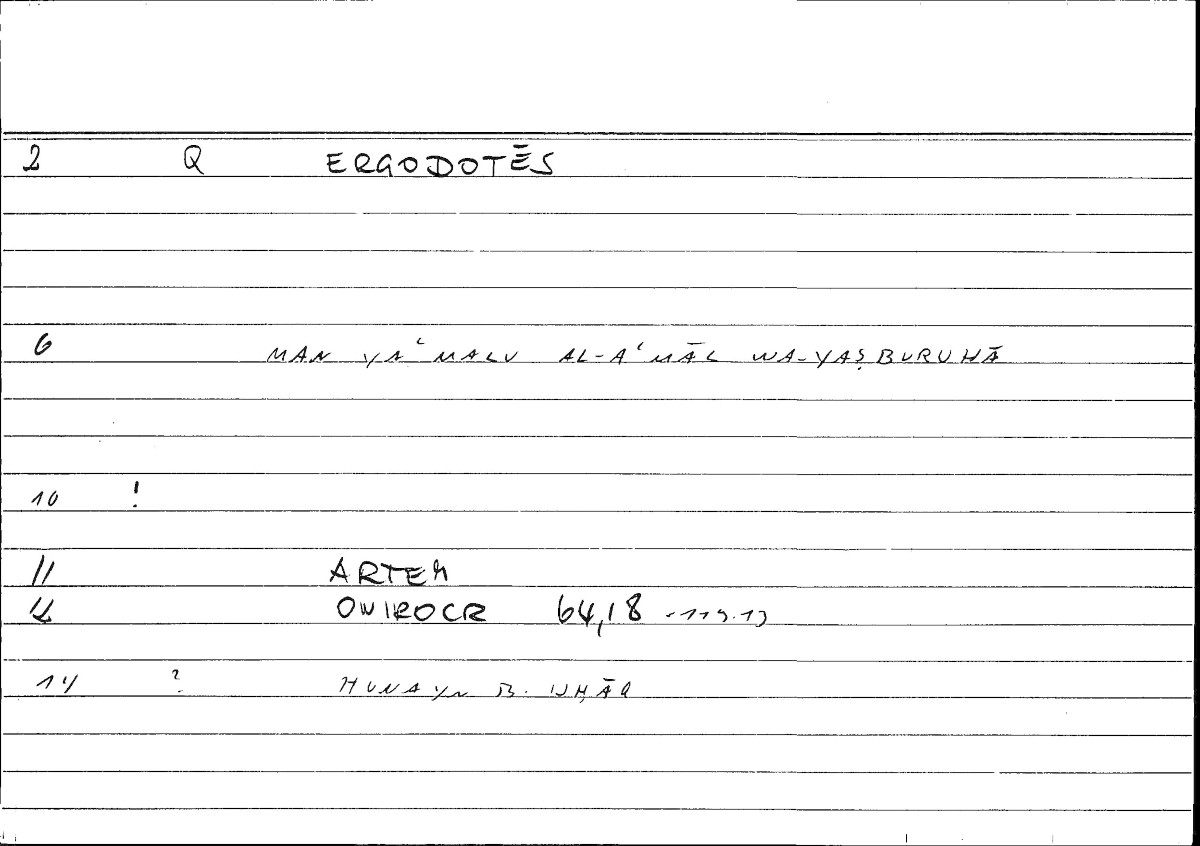 2 Q ERGODOTĒS
6 MAN YAʿMALU AL-AʿMĀL WA-YAṢBURUHĀ
10 !
11 ARTEM
12 ONIROCR 64,18 -119.13
14 ? HUNAYN B. ISḤĀQ